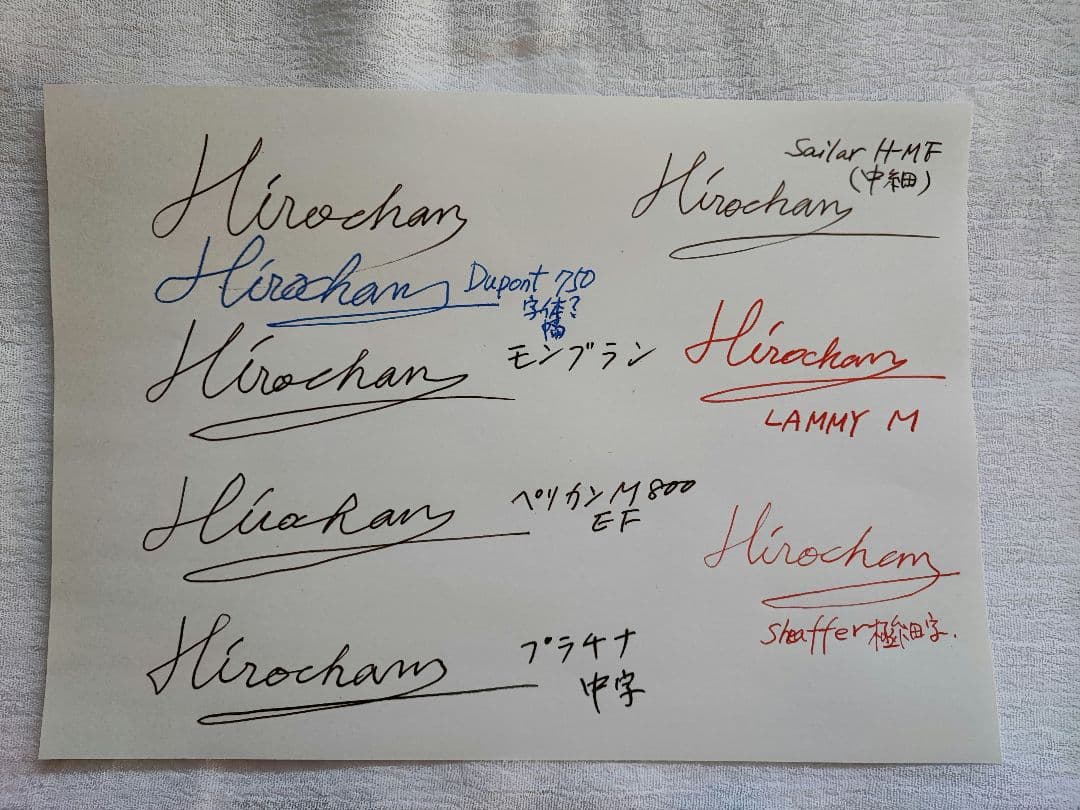 Hirochan
Hirochan Dupont 750
字体?
幅
Hirochan モンブラン
Hirochan ペリカンM800
EF
Hirochan プラチナ
中字
Sailar H-MF
(中細)
Hirochan
Hirochan
LAMMY M
Hirochan
Sheaffer極細字.